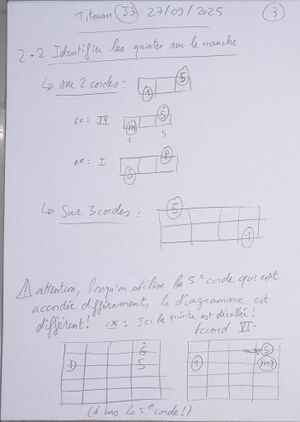 Titouan J3 27/09/2025 3
2-2 Identifier les quintes sur le manche
↳ sur 2 cordes :
5
1
ex : IV
5
m
1 5
ex : I
5
↳ Sur 3 cordes :
5
1
⚠ attention, lorsqu'on utilise la 5e corde qui est
accordée différemment, le diagramme est
différent ! ex = Ici la quinte est décallée !
Accord VI-
5
1 5
1 5
m3
(à bas la 5e corde !)